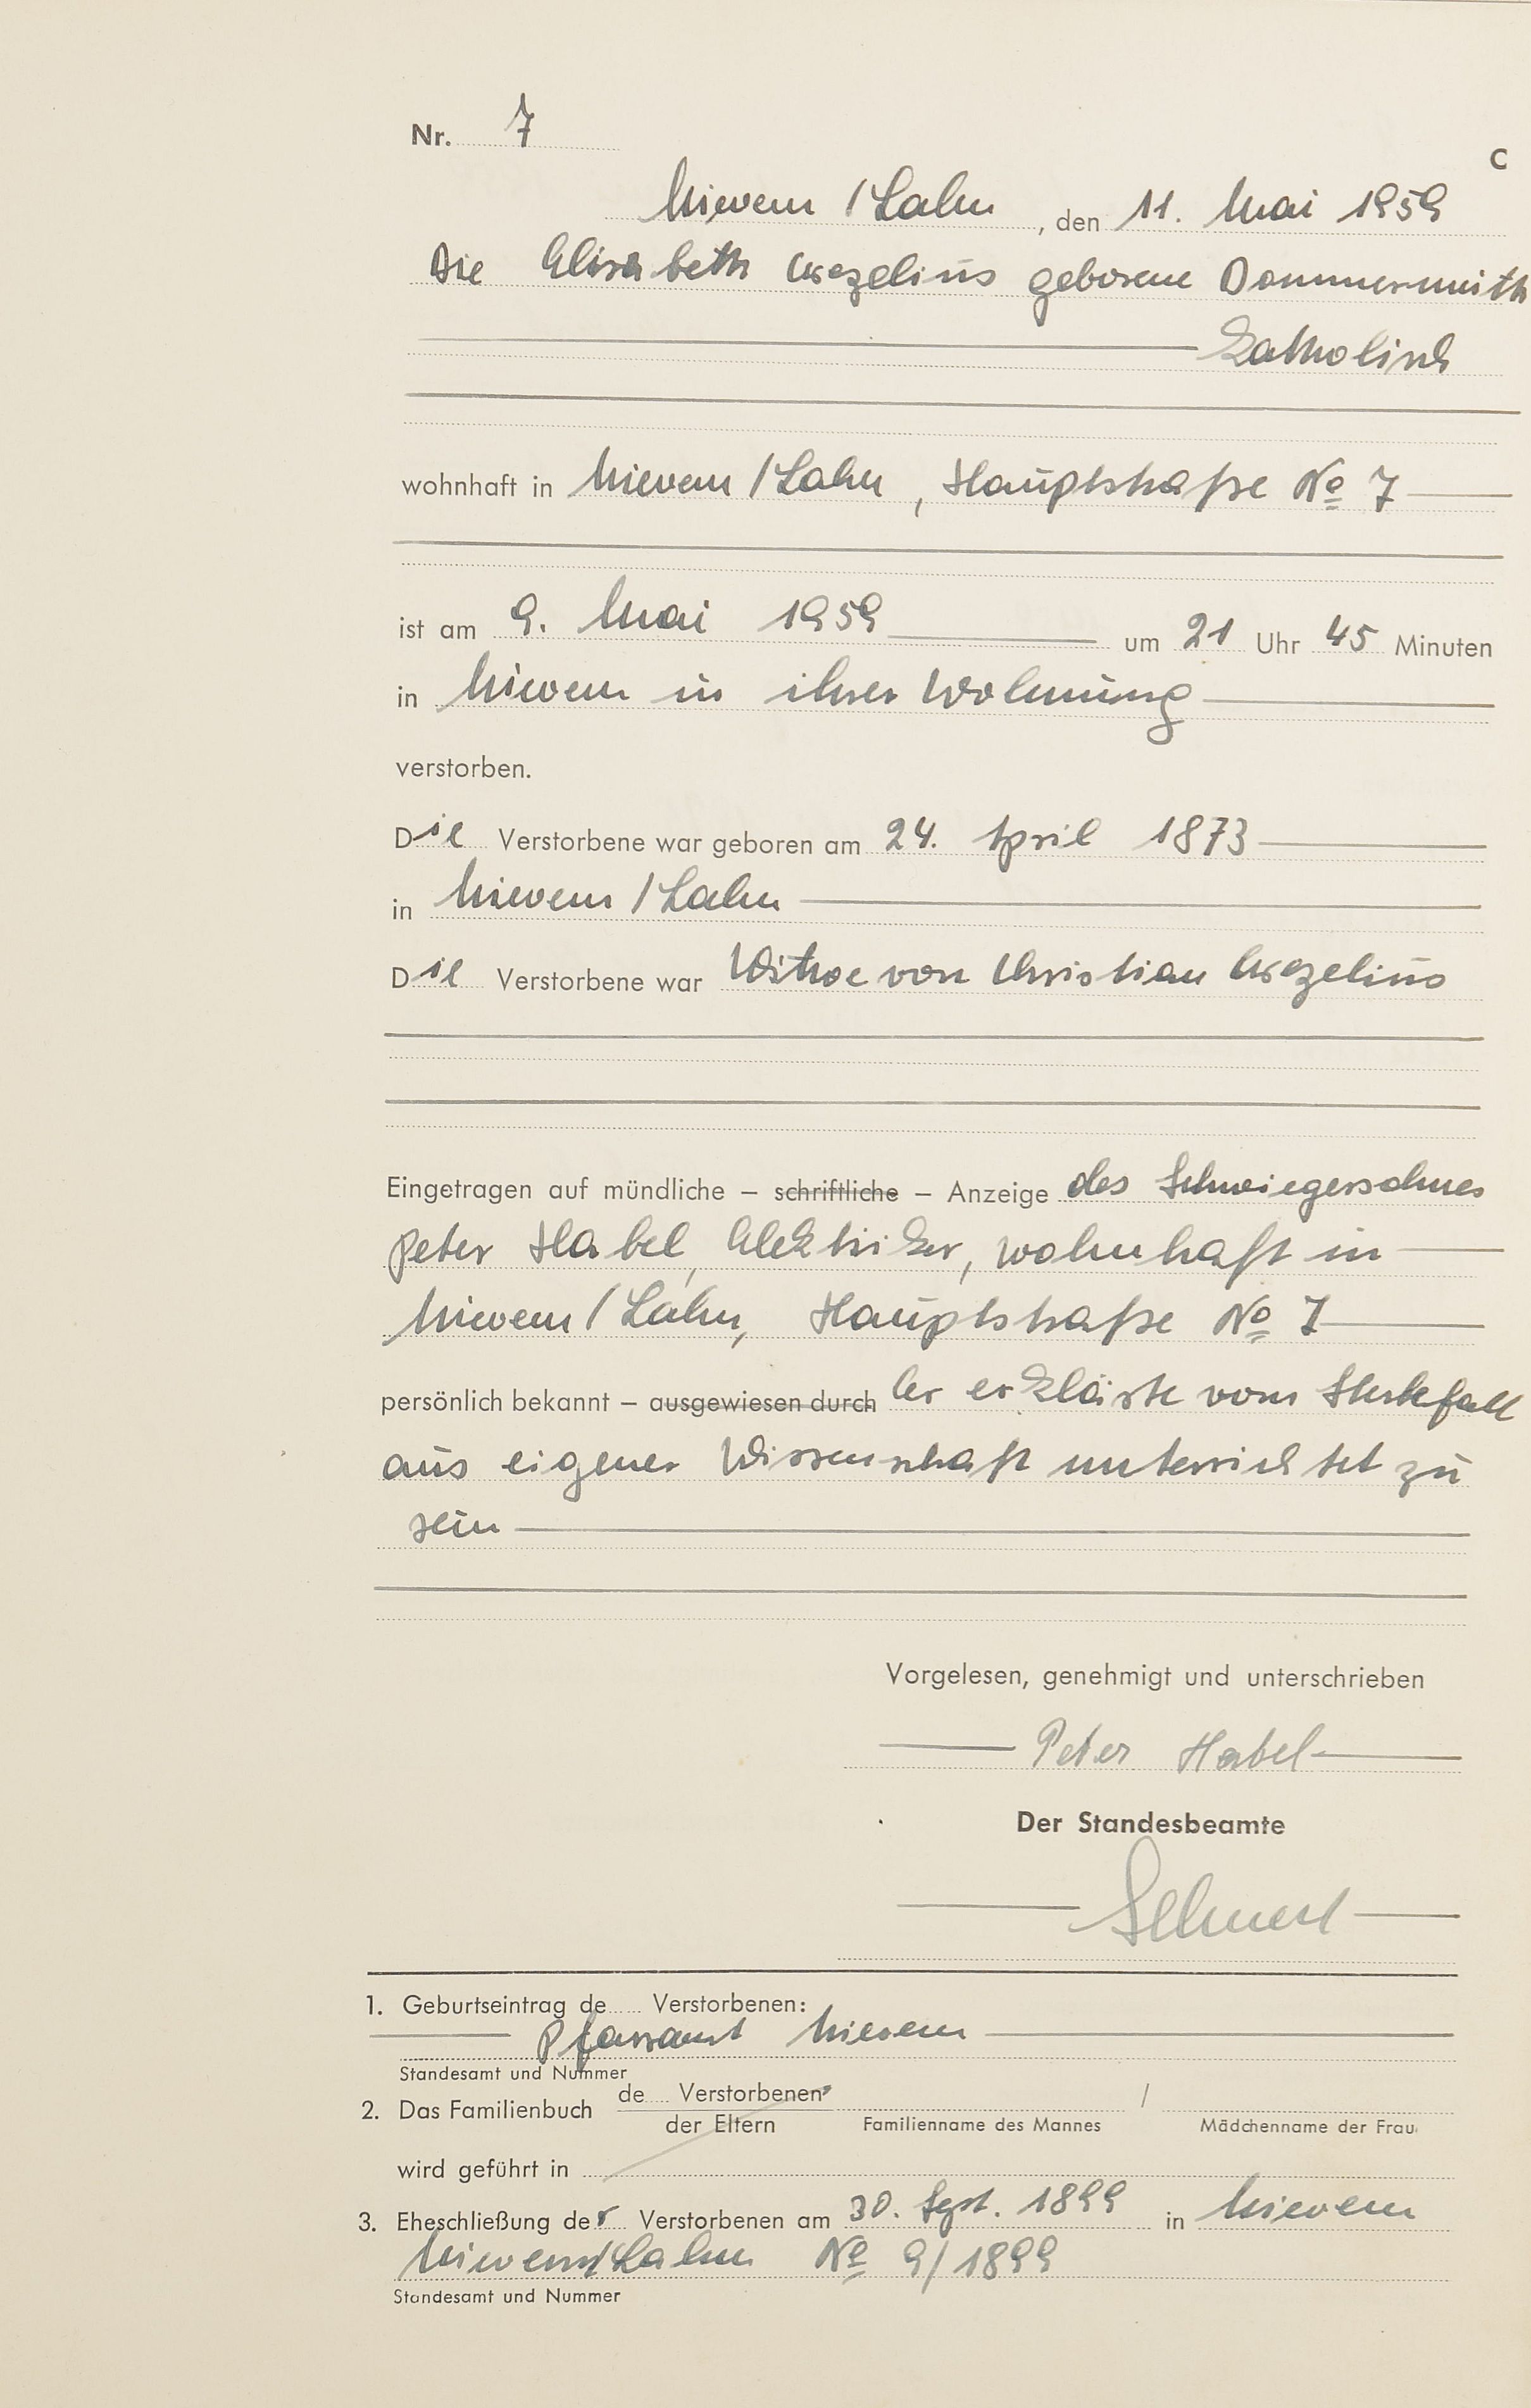 Nr. 7
C
Mievern / Lahn, den 11. Mai 1959
Die Elisabeth geborene Dommermuth
katholisch
wohnhaft in Mievern / Lahn, Hauptstraße No 7
ist am 9. Mai 1959 um 21 Uhr 45 Minuten
in Mievern in ihrer Wohnung
verstorben.
Die Verstorbene war geboren am 24. April 1873
in Mievern / Lahn
Die Verstorbene war Witwe von Christian
Eingetragen auf mündliche – schriftliche – Anzeige des Schwiegersohnes
Peter Habel, Elektriker, wohnhaft in
Mievern / Lahn, Hauptstraße No 7
persönlich bekannt – ausgewiesen durch Er erklärte vom Sterbefall
aus eigener Wissenschaft unterrichtet zu
sein
Vorgelesen, genehmigt und unterschrieben
Peter Habel
Der Standesbeamte
1. Geburtseintrag de Verstorbenen:
Pfarramt Mievern
Standesamt und Nummer
2. Das Familienbuch de Verstorbenen /
der Eltern Familienname des Mannes Mädchenname der Frau
wird geführt in
3. Eheschließung der Verstorbenen am 30. Sept. 1899 in Mievern
Mievern / Lahn No 9/1899
Standesamt und Nummer